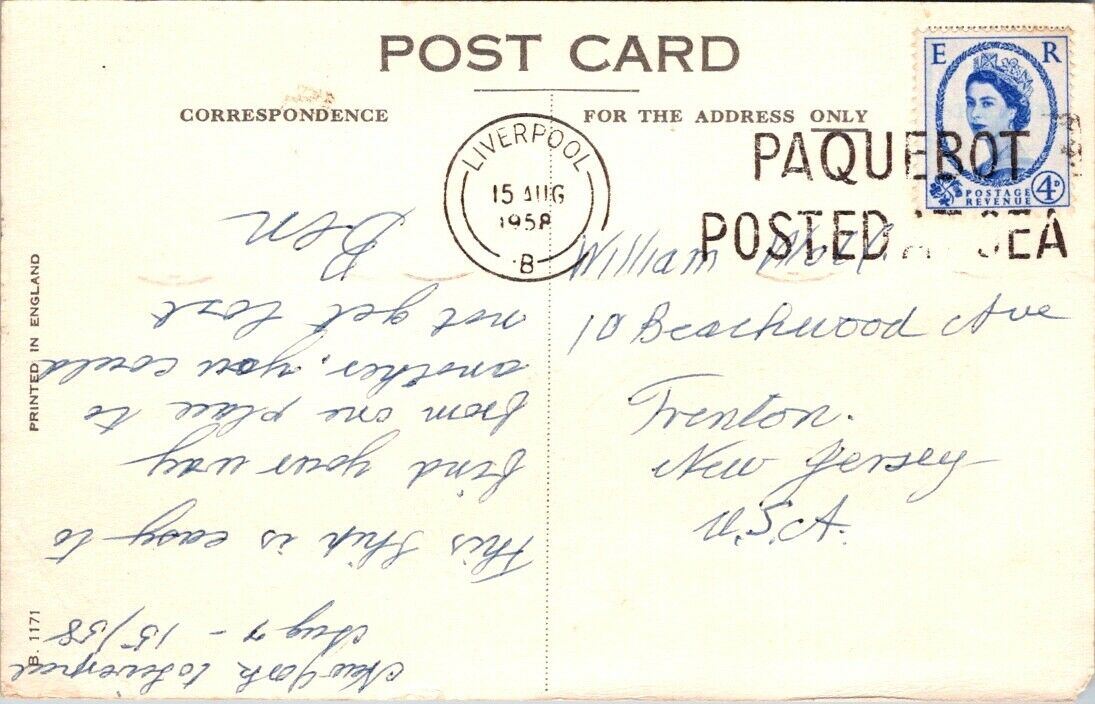 POST CARD
CORRESPONDENCE
FOR THE ADDRESS ONLY
E R
POSTAGE
REVENUE
4D
LIVERPOOL
15 AUG
1958
B
PAQUEBOT
POSTED AT SEA
New York to Liverpool
Aug 7 - 15/58
This ship is easy to
find your way
from one place to
another, you could
not get lost
Ben
William
10 Beachwood Ave
Trenton.
New Jersey
U.S.A.
PRINTED IN ENGLAND
B. 1171